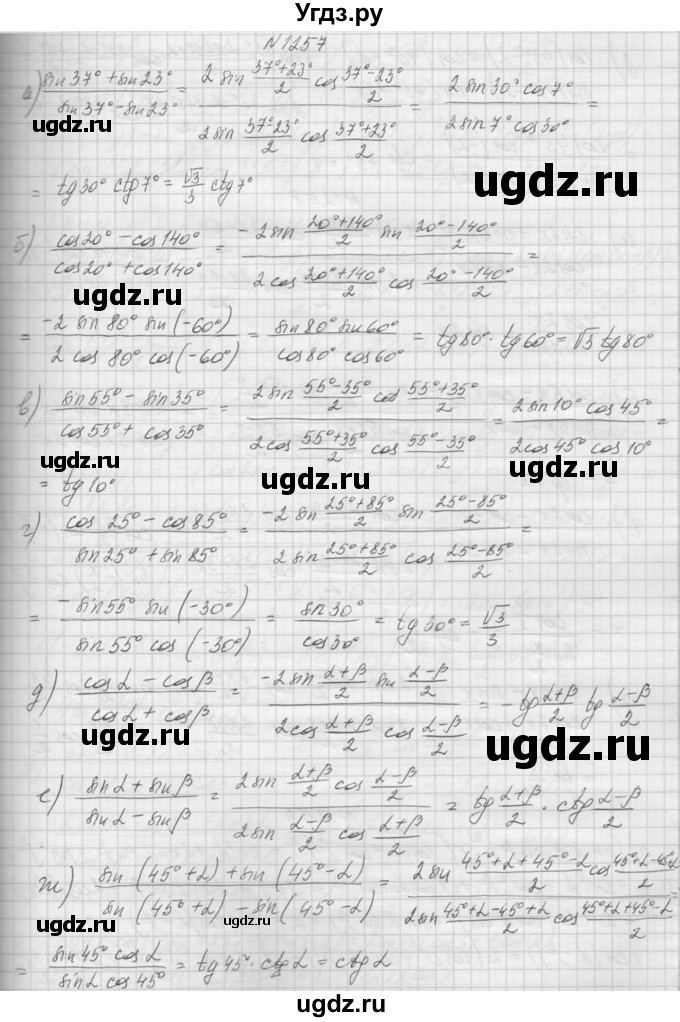 Угдз.ру
N 1257
а) (sin 37° + sin 23°)/(sin 37° - sin 23°) = (2 sin (37°+23°)/2 cos (37°-23°)/2)/(2 sin (37°-23°)/2 cos (37°+23°)/2) = (2 sin 30° cos 7°)/(2 sin 7° cos 30°) =
= tg 30° ctg 7° = √3/3 ctg 7°
б) (cos 20° - cos 140°)/(cos 20° + cos 140°) = (-2 sin (20°+140°)/2 sin (20°-140°)/2)/(2 cos (20°+140°)/2 cos (20°-140°)/2) =
= (-2 sin 80° sin (-60°))/(2 cos 80° cos (-60°)) = (sin 80° sin 60°)/(cos 80° cos 60°) = tg 80° · tg 60° = √3 tg 80°
в) (sin 55° - sin 35°)/(cos 55° + cos 35°) = (2 sin (55°-35°)/2 cos (55°+35°)/2)/(2 cos (55°+35°)/2 cos (55°-35°)/2) = (2 sin 10° cos 45°)/(2 cos 45° cos 10°) =
= tg 10°
г) (cos 25° - cos 85°)/(sin 25° + sin 85°) = (-2 sin (25°+85°)/2 sin (25°-85°)/2)/(2 sin (25°+85°)/2 cos (25°-85°)/2) =
= (-sin 55° sin (-30°))/(sin 55° cos (-30°)) = (sin 30°)/(cos 30°) = tg 30° = √3/3
д) (cos α - cos β)/(cos α + cos β) = (-2 sin (α+β)/2 sin (α-β)/2)/(2 cos (α+β)/2 cos (α-β)/2) = -tg (α+β)/2 tg (α-β)/2
е) (sin α + sin β)/(sin α - sin β) = (2 sin (α+β)/2 cos (α-β)/2)/(2 sin (α-β)/2 cos (α+β)/2) = tg (α+β)/2 · ctg (α-β)/2
ж) (sin (45°+α) + sin (45°-α))/(sin (45°+α) - sin (45°-α)) = (2 sin (45°+α+45°-α)/2 cos (45°+α-45°+α)/2)/(2 sin (45°+α-45°+α)/2 cos (45°+α+45°-α)/2) =
= (sin 45° cos α)/(sin α cos 45°) = tg 45° · ctg α = ctg α
ugdz.ru
ugdz.ru
ugdz.ru
ugdz.ru
ugdz.ru
ugdz.ru
ugdz.ru
ugdz.ru
ugdz.ru
ugdz.ru
ugdz.ru
ugdz.ru
ugdz.ru